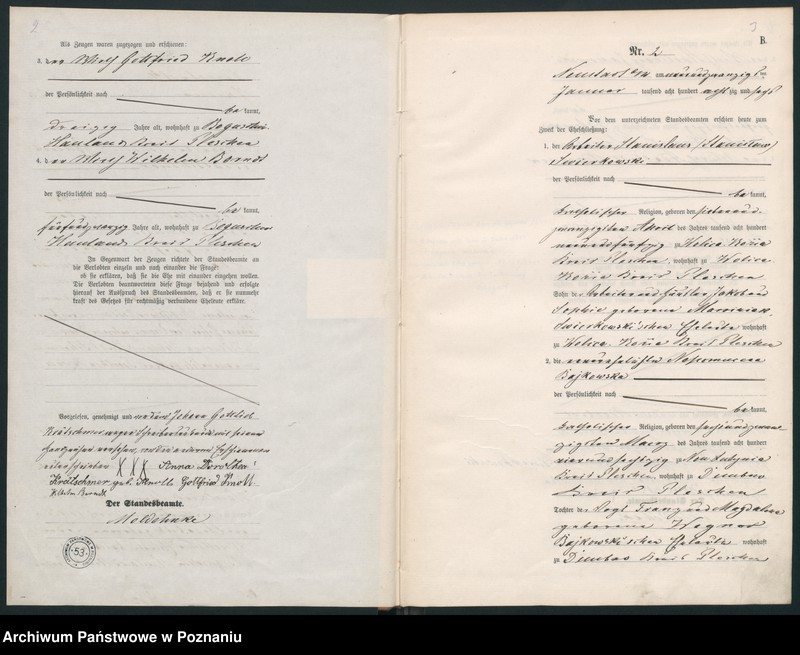 2
Als Zeugen waren zugezogen und erschienen:
3. der Wirth Gottfried Knoll
der Persönlichkeit nach
be kannt,
dreizig Jahre alt, wohnhaft zu Bogardin-
Hauland Kreis Pleschen
4. der Wirth Wilhelm Berndt
der Persönlichkeit nach
be kannt,
fünfundzwanzig Jahre alt, wohnhaft zu
Hauland Kreis Pleschen
In Gegenwart der Zeugen richtete der Standesbeamte an
die Verlobten einzeln und nach einander die Frage:
ob sie erklären, daß sie die Ehe mit einander eingehen wollen.
Die Verlobten beantworteten diese Frage bejahend und erfolgte
hierauf der Ausspruch des Standesbeamten, daß er sie nunmehr
kraft des Gesetzes für rechtmäßig verbundene Eheleute erkläre.
Vorgelesen, genehmigt und von Johann Gottlieb
Krätschmer wegen Schreibensunkunde mit seinem
Handzeichen versehen, von den anderen Erschienenen
unterschrieben XXX Anna Dorothea
Krätschmer geb. Knoll Gottfried Knoll
Wilhelm Berndt
Der Standesbeamte.
53
3
B.
Nr. 2
Neustadt a/W am neunundzwanzigsten
Januar tausend acht hundert acht zig und sechs
Vor dem unterzeichneten Standesbeamten erschien heute zum
Zweck der Eheschließung:
1. der Arbeiter Stanislaus (Stanisław)
Swierkowski
der Persönlichkeit nach
be kannt,
katholischer Religion, geboren den siebenund-
zwanzigsten April des Jahres tausend acht hundert
neunundfünfzig zu Wolica Kozia
Kreis Pleschen, wohnhaft zu Wolica
Kozia Kreis Pleschen
Sohn des Arbeiter und Häusler Jakob und
Sophie geborene
Swierkowski'schen Eheleute wohnhaft
zu Wolica Kozia Kreis Pleschen
2. die unverehelichte Nepomucena
Bajkowska
der Persönlichkeit nach
be kannt,
katholischer Religion, geboren den sechsundzwan-
zigsten März des Jahres tausend acht hundert
vierundsechszig zu
Kreis Pleschen, wohnhaft zu Dembno
Kreis Pleschen
Tochter des Vogt Franz und Magdalena
geborene Wegner
Bajkowski'schen Eheleute wohnhaft
zu Dembno Kreis Pleschen
Archiwum Państwowe w Poznaniu
szukajwarchiwach.pl